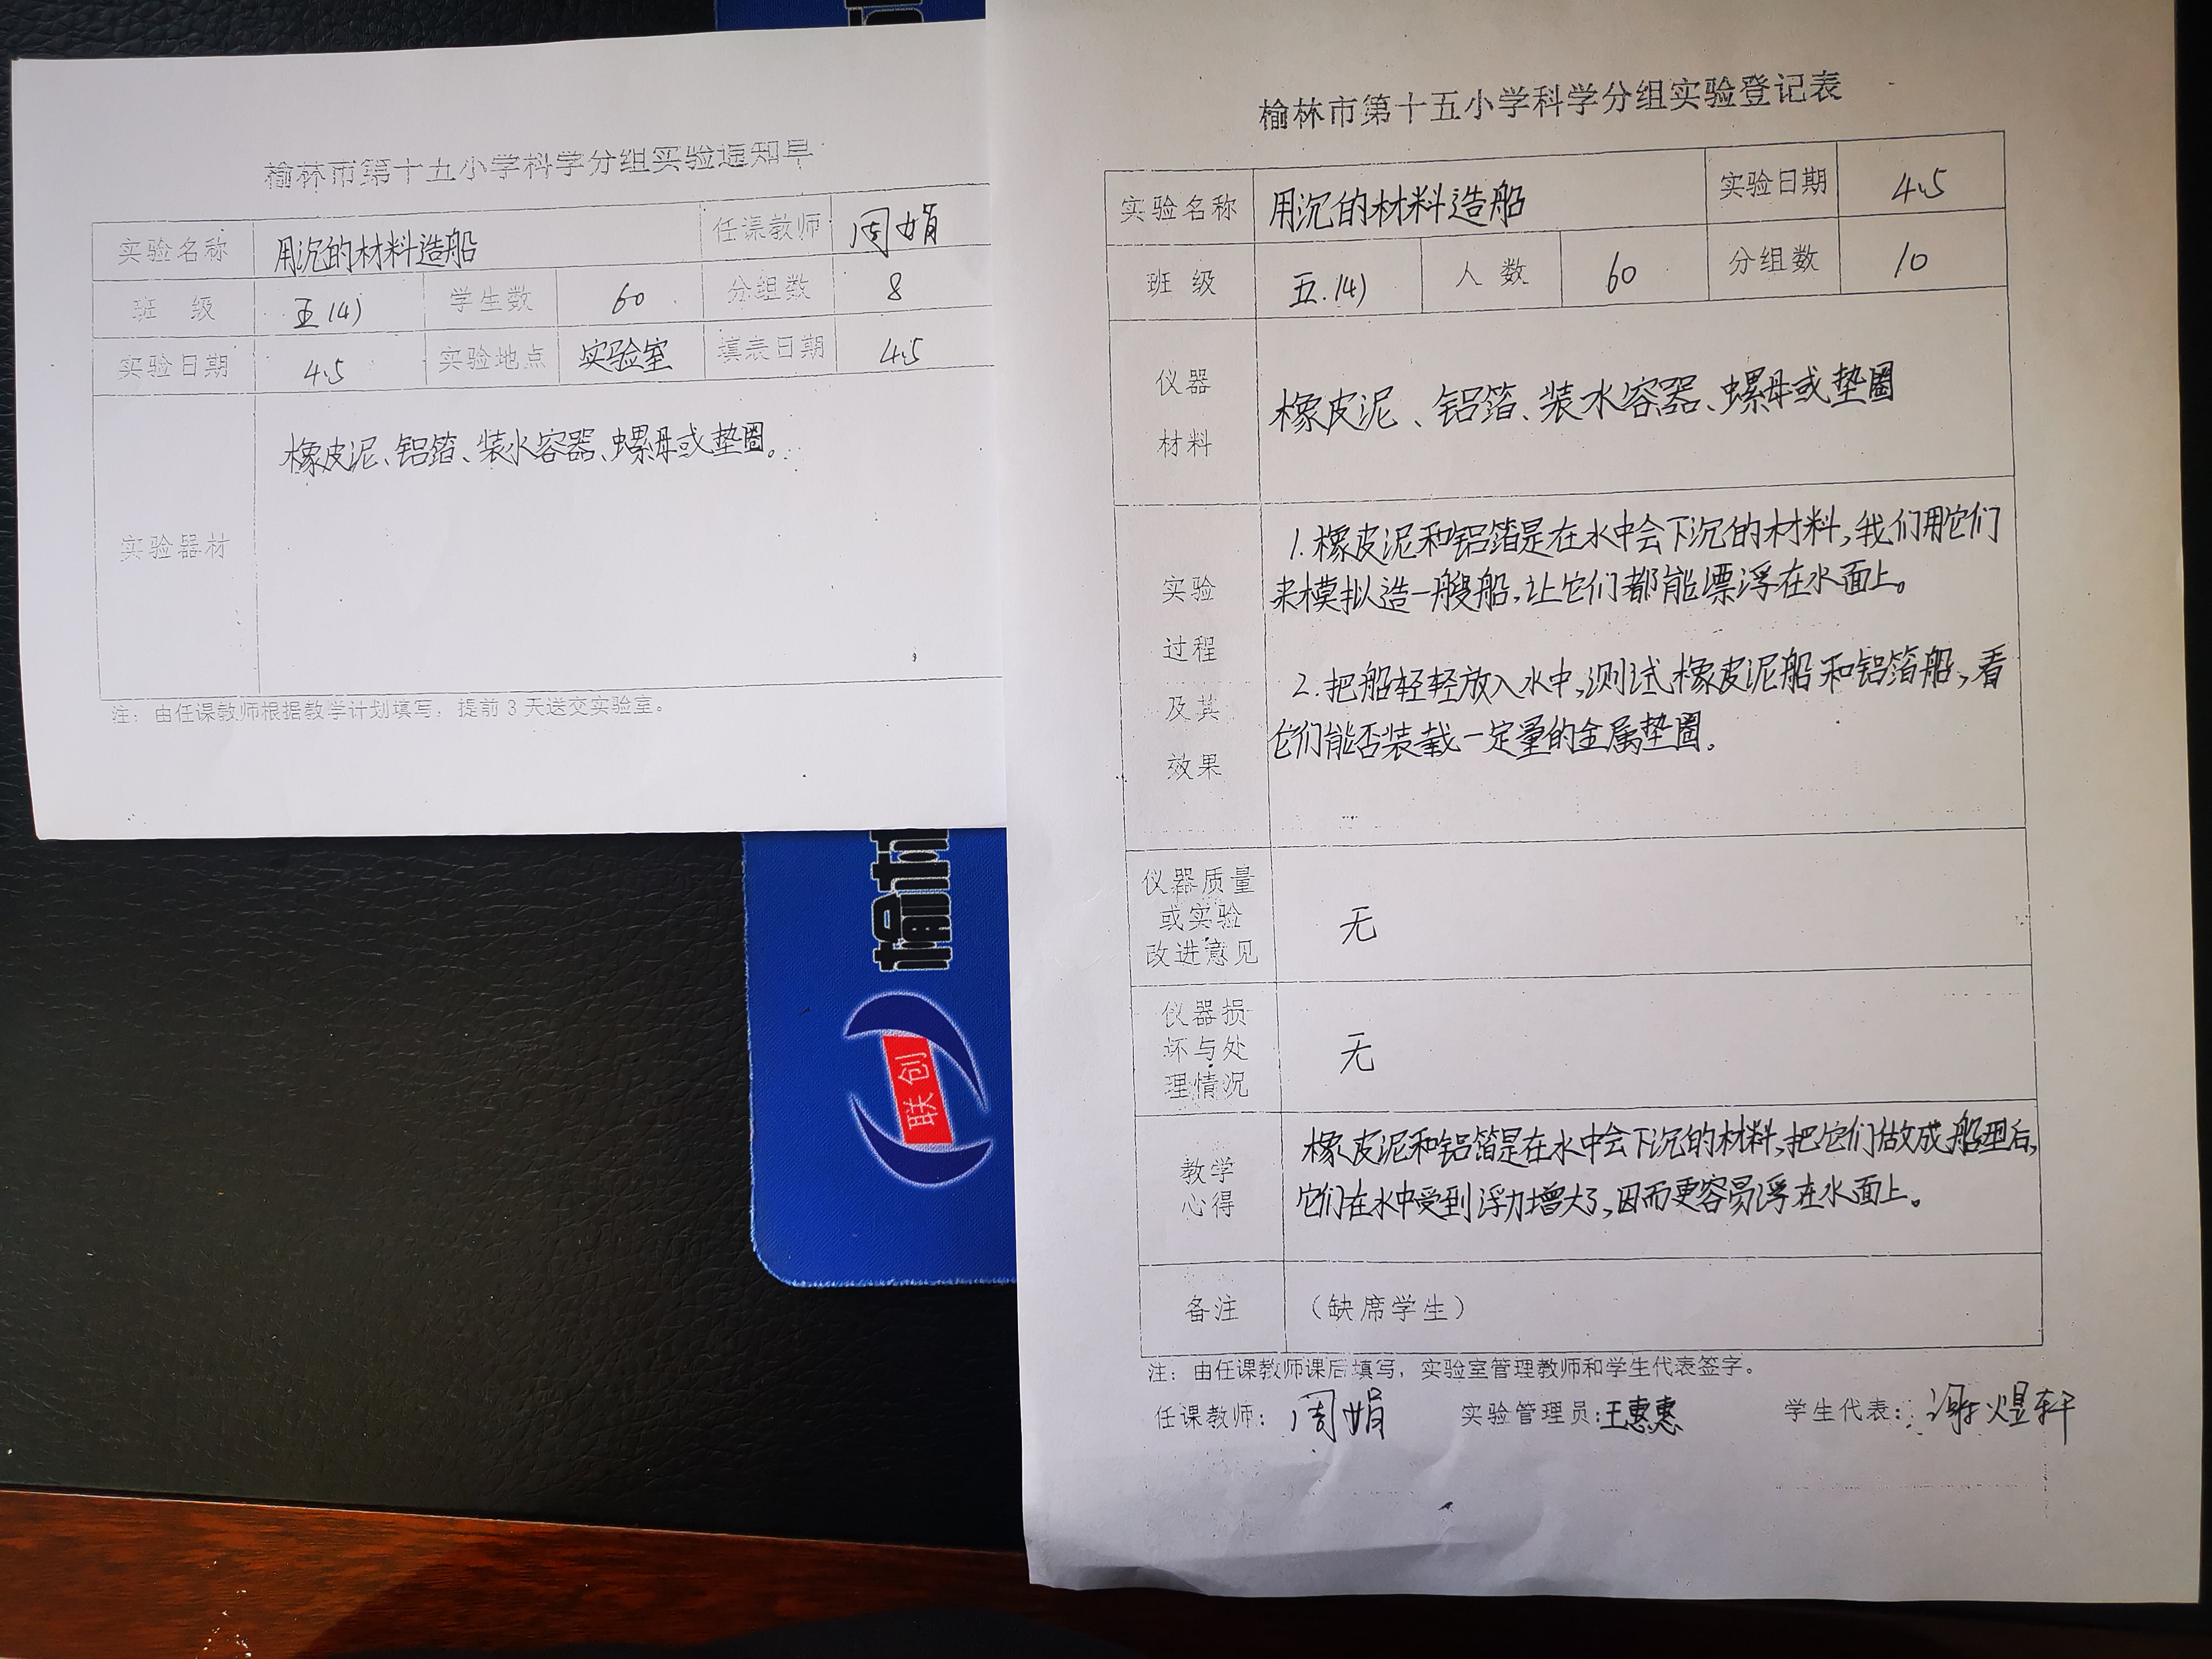 榆林市第十五小学科学分组实验通知单
实验名称 用沉的材料造船 任课教师 周娟
班 级 五(4) 学生数 60 分组数 8
实验日期 4.5 实验地点 实验室 填表日期 4.5
实验器材 橡皮泥、铝箔、装水容器、螺母或垫圈。
注：由任课教师根据教学计划填写，提前3天送交实验室。
榆林
联创
榆林市第十五小学科学分组实验登记表
实验名称 用沉的材料造船 实验日期 4.5
班 级 五.(4) 人 数 60 分组数 10
仪器
材料
橡皮泥、铝箔、装水容器、螺母或垫圈
实验
过程
及其
效果
1.橡皮泥和铝箔是在水中会下沉的材料,我们用它们
来模拟造一艘船,让它们都能漂浮在水面上。
2.把船轻轻放入水中,测试橡皮泥船和铝箔船,看
它们能否装载一定量的金属垫圈。
仪器质量
或实验
改进意见
无
仪器损
坏与处
理情况
无
教学
心得
橡皮泥和铝箔是在水中会下沉的材料,把它们做成船型后,
它们在水中受到浮力增大了,因而更容易浮在水面上。
备注 （缺席学生）
注：由任课教师课后填写，实验室管理教师和学生代表签字。
任课教师：周娟 实验管理员:王惠惠 学生代表：谢煜轩